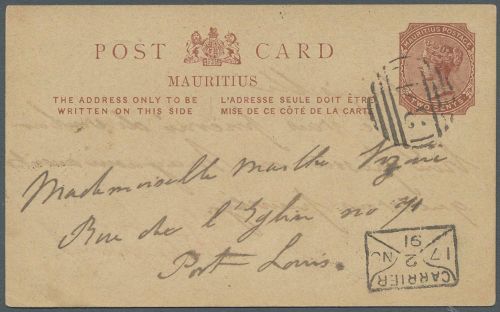 POST CARD
MAURITIUS
THE ADDRESS ONLY TO BE WRITTEN ON THIS SIDE
L'ADRESSE SEULE DOIT ÊTRE MISE DE CE CÔTÉ DE LA CARTE
MAURITIUS POSTAGE
TWO CENTS
Mademoiselle Marthe
Rue de l'Eglise no
Port Louis.
CARRIER
17 2 NO
91